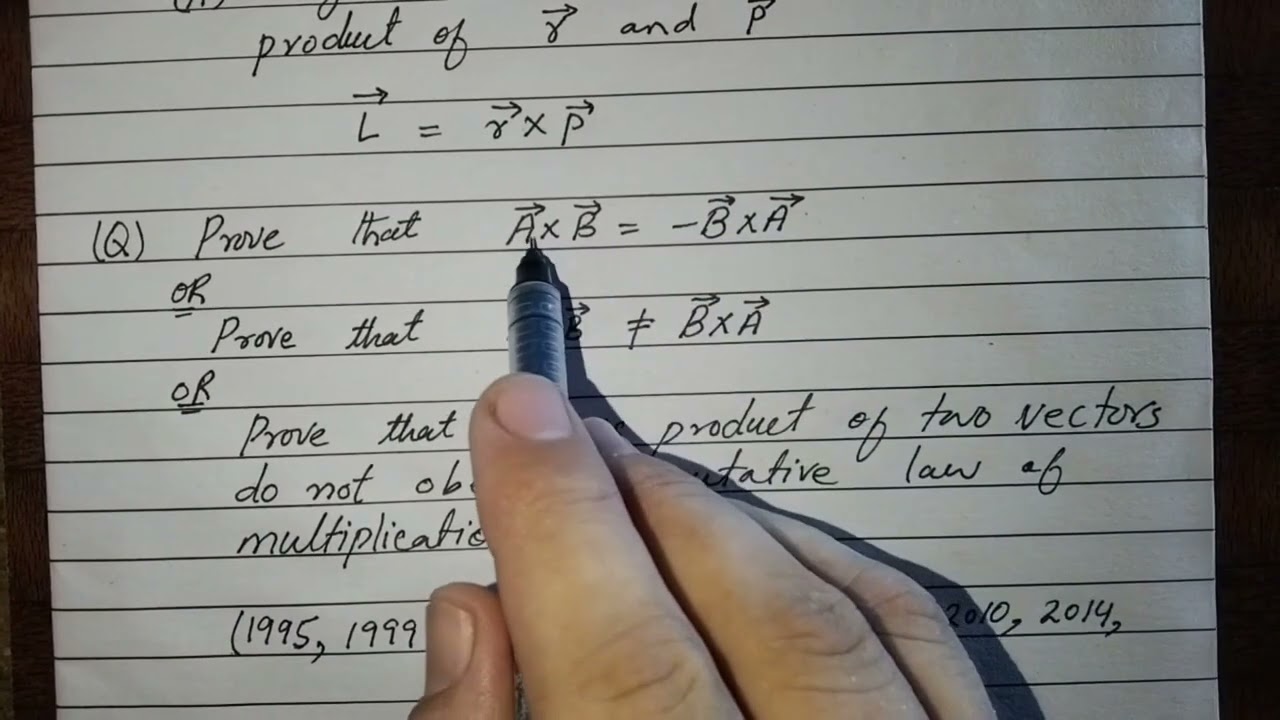 product of r⃗ and P⃗
L⃗ = r⃗ × P⃗
(Q) Prove that A⃗ × B⃗ = −B⃗ × A⃗
OR
Prove that B⃗ ≠ B⃗ × A⃗
OR
Prove that product of two vectors
do not law of
(1995, 1999 2010, 2014,